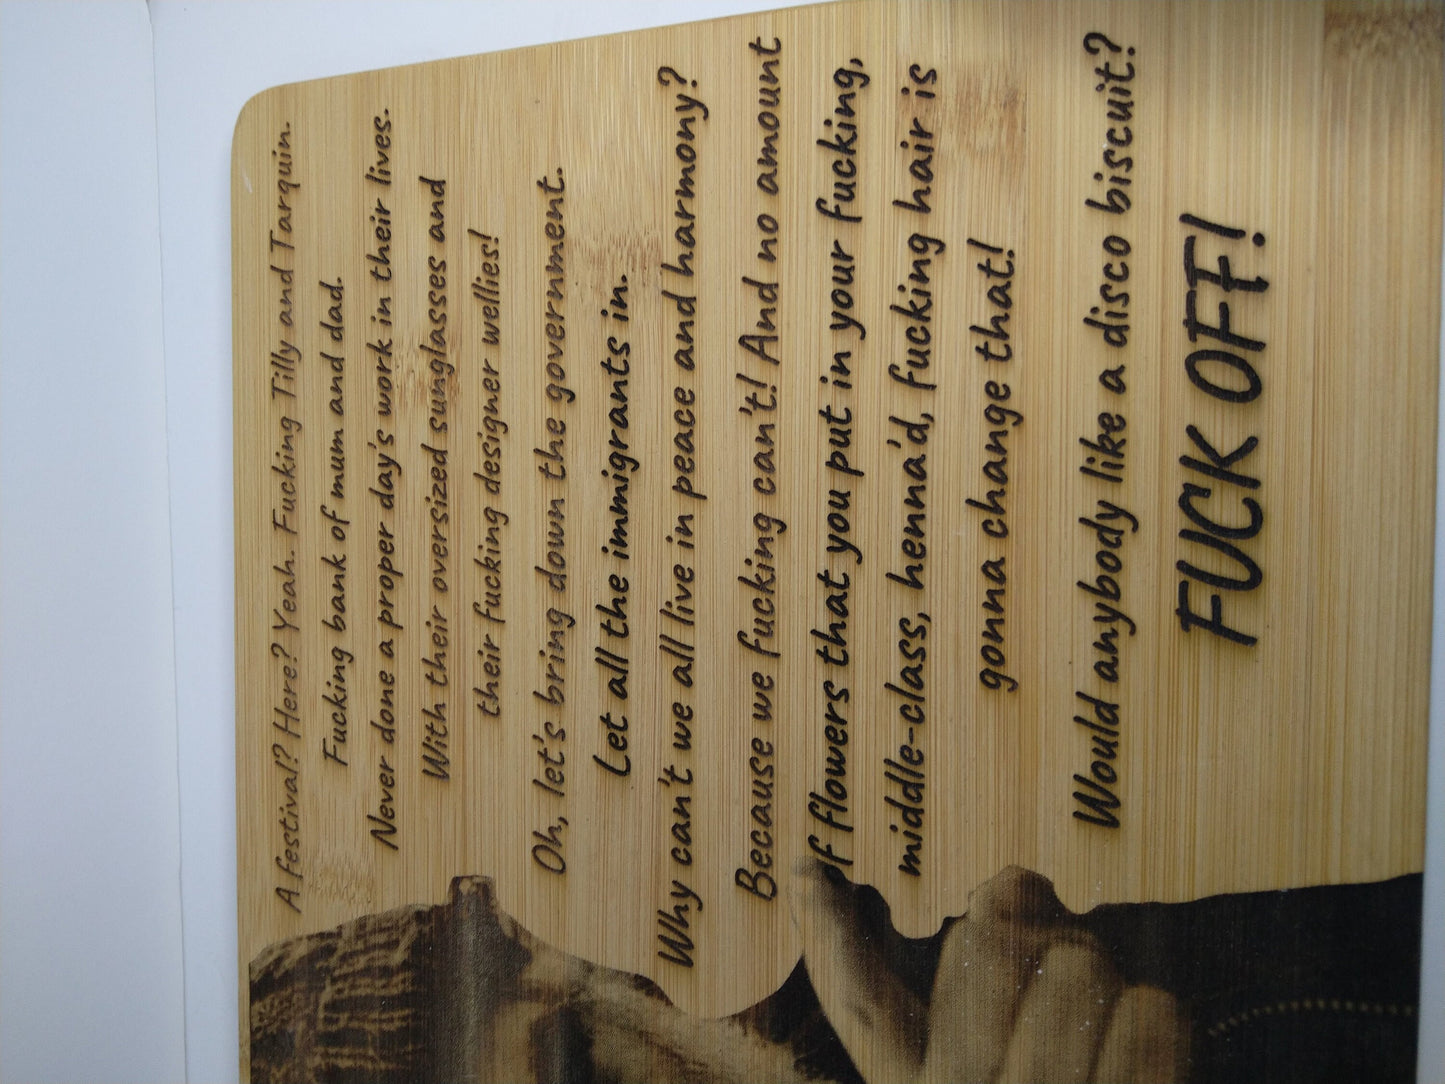 A festival? Here? Yeah. Fucking Tilly and Tarquin.
Fucking bank of mum and dad.
Never done a proper day's work in their lives.
With their oversized sunglasses and
their fucking designer wellies!
Oh, let's bring down the government.
Let all the immigrants in.
Why can't we all live in peace and harmony?
Because we fucking can't! And no amount
of flowers that you put in your fucking,
middle-class, henna'd, fucking hair is
gonna change that!
Would anybody like a disco biscuit?
FUCK OFF!